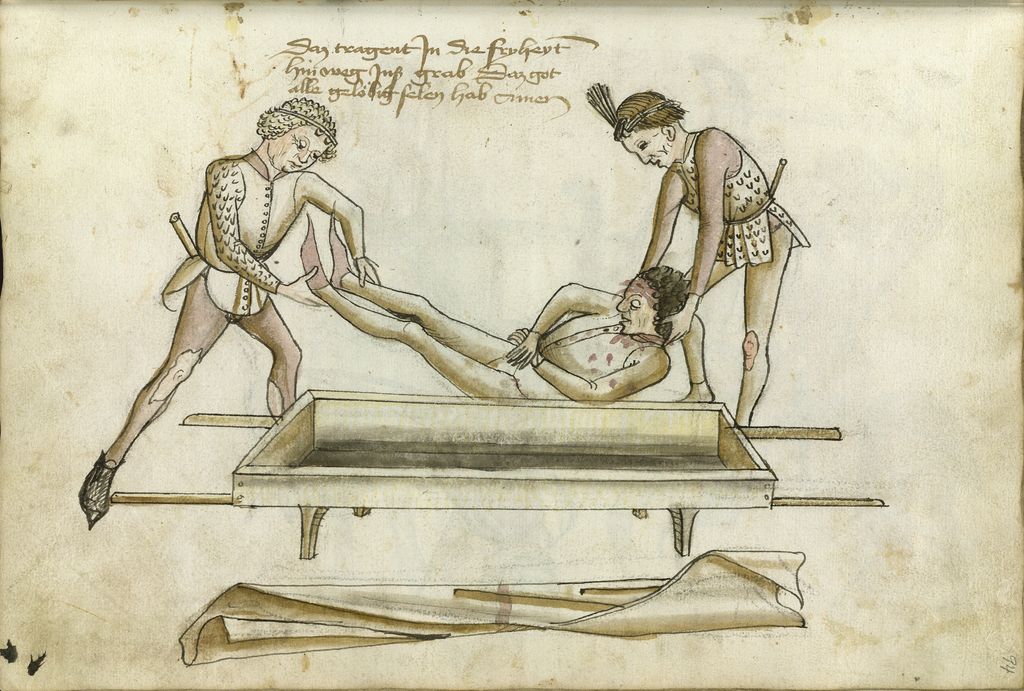 Daz tragent In die fryheyt
hin weg Inß grab Daz got
alle gelöbig selen hab
94